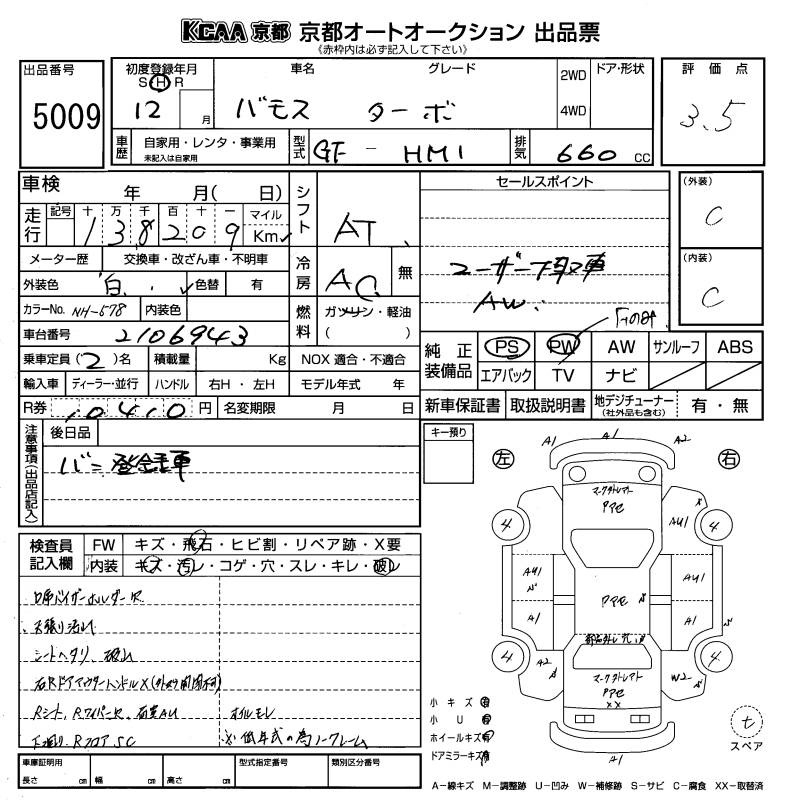 KCAA 京都 京都オートオークション 出品票
《赤枠内は必ず記入して下さい》
出品番号
5009
初度登録年月
S H R
12 月
車名
バモス
グレード
ターボ
2WD
4WD
ドア・形状
評価点
3.5
車歴
自家用・レンタ・事業用
未記入は自家用
型式
GF - HM1
排気
660 cc
車検 年 月( 日)
走行
記号 十 万 千 百 十 一
138209
マイル
Km
シフト
AT
メーター歴
交換車・改ざん車・不明車
外装色
白
色替
有
冷房
AC
無
カラーNo.
NH-578
内装色
燃料
ガソリン・軽油
( )
車台番号
2106943
乗車定員(2)名
積載量
Kg
NOX 適合・不適合
輸入車
ディーラー・並行
ハンドル
右H・左H
モデル年式 年
R券
10410 円
名変期限 月 日
セールスポイント
ユーザー下取車
AW
(外装)
C
(内装)
C
純正装備品
PS
PW
AW
サンルーフ
ABS
エアバック
TV
ナビ
新車保証書
取扱説明書
地デジチューナー
(社外品も含む)
有・無
注意事項(出品店記入)
後日品
バン登録車
キー預り
検査員記入欄
FW
キズ・飛石・ヒビ割・リペア跡・X要
内装
キズ・汚レ・コゲ・穴・スレ・キレ・破レ
天張り汚れ
シートヘタリ、破れ
オイルモレ
※低年式の為ノークレーム
車庫証明用
長さ cm
幅 cm
高さ cm
型式指定番号
類別区分番号
左
右
A1
A1
A2
4
4
AU1
AU1
AU1
A1
A1
4
4
A2
W2
XX
A1
小キズ
小U
ホイールキズ
ドアミラーキズ
t
スペア
A―線キズ M―調整跡 U―凹み W―補修跡 S―サビ C―腐食 XX―取替済